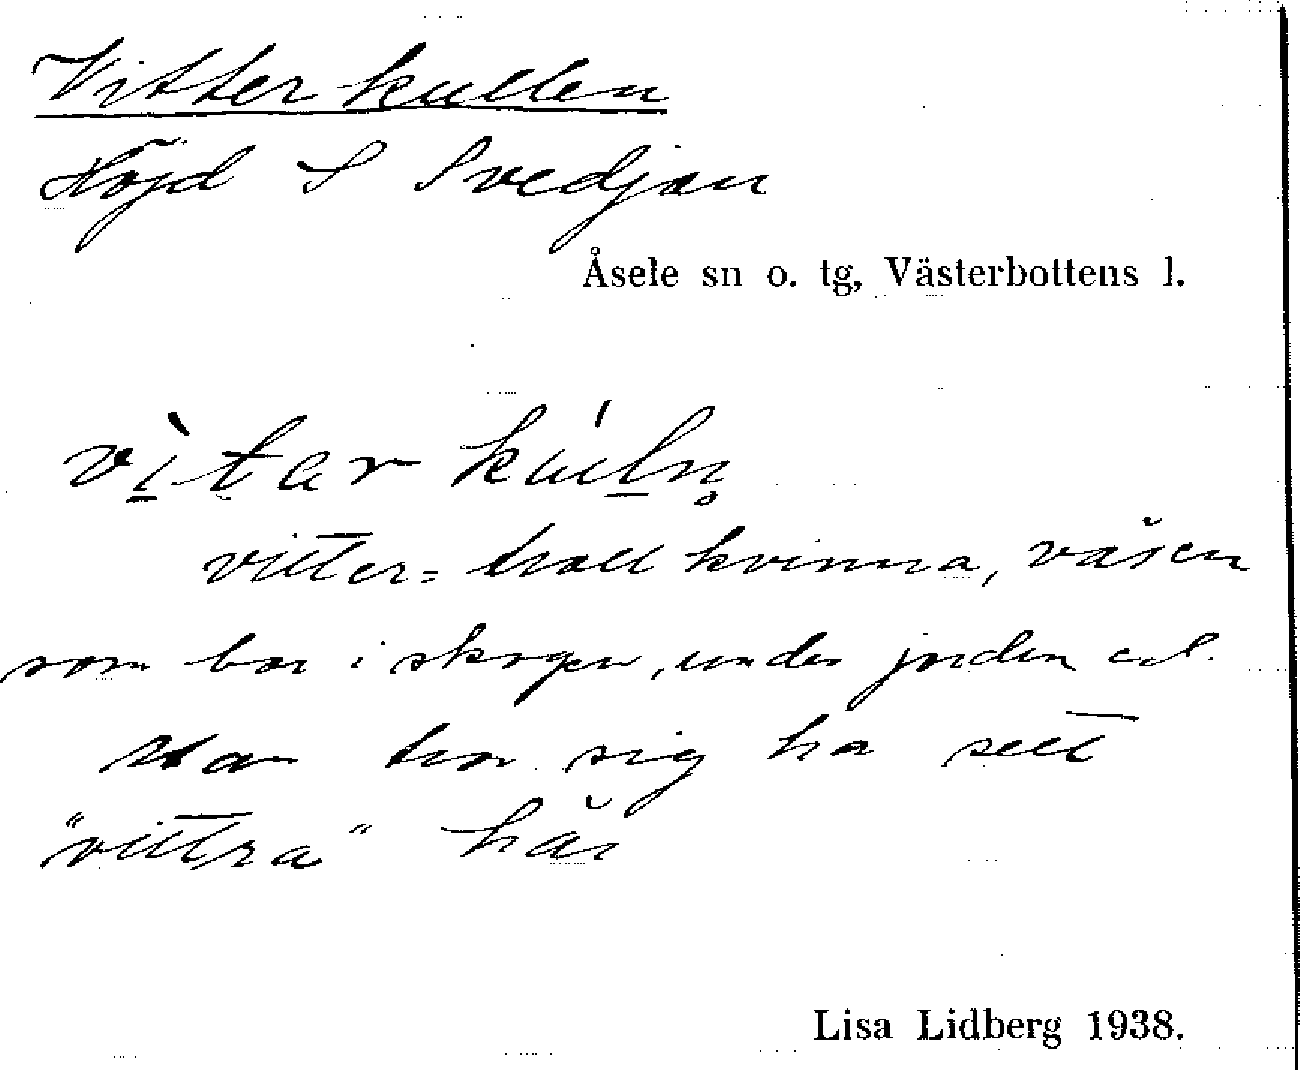 Vitterkullen
Höjd S Svedjan
Åsele sn o. tg, Västerbottens l.
vìtar kúln̥
vitter = trollkvinna, väsen
som bor i skogen, under jorden
Man tror sig ha sett
"vittra" här
Lisa Lidberg 1938.